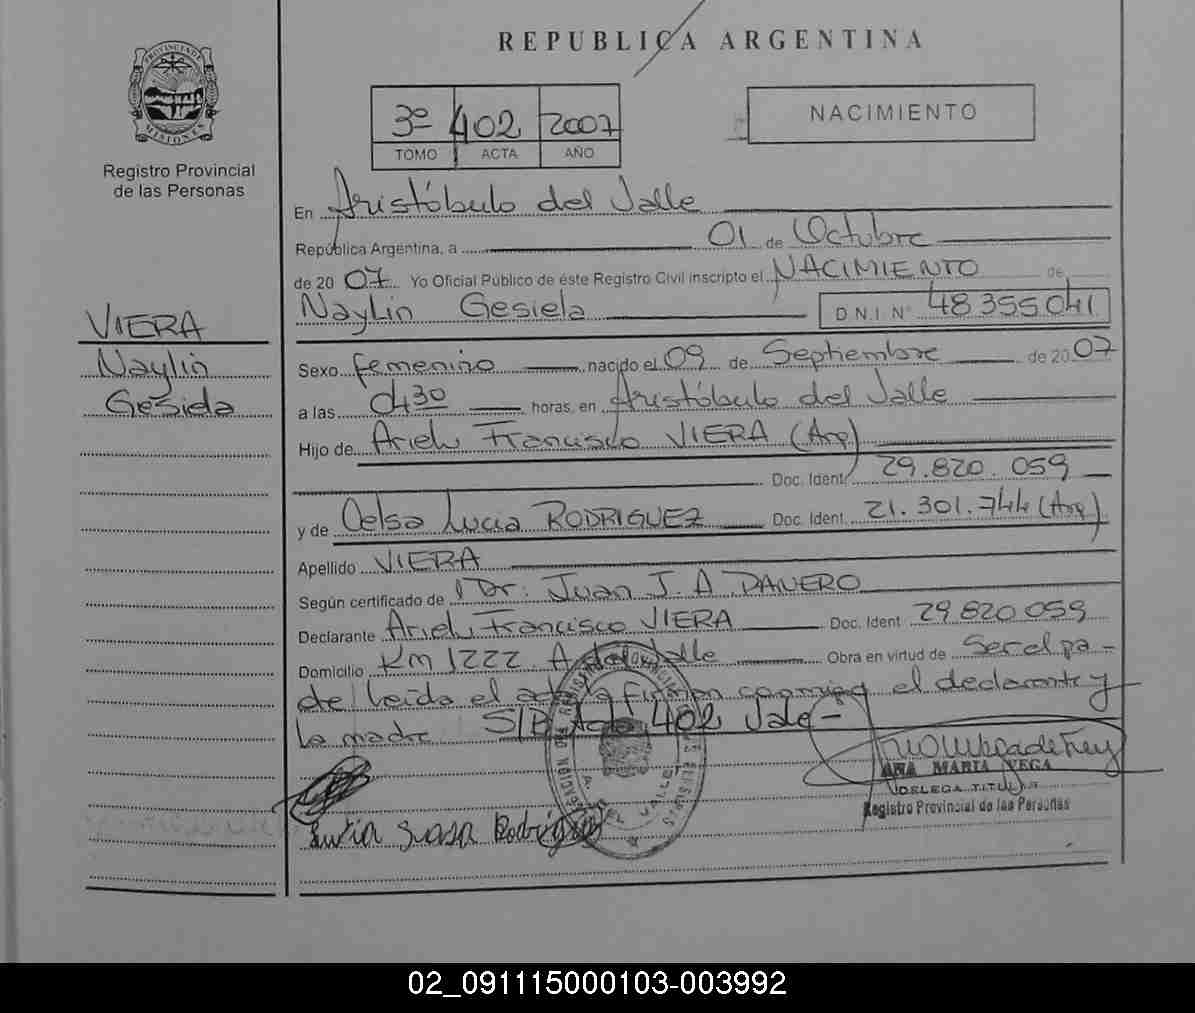 REPUBLICA ARGENTINA
PROVINCIA DE MISIONES
Registro Provincial
de las Personas
3º 402 2007
TOMO ACTA AÑO
NACIMIENTO
En Aristóbulo del Valle
República Argentina, a 01 de Octubre
de 20 07. Yo Oficial Público de éste Registro Civil inscripto el NACIMIENTO de
Naylin Gesiela D.N.I. Nº 48355041
VIERA
Naylin
Gesiela
Sexo femenino nacido el 09 de Septiembre de 20 07
a las 0430 horas, en Aristóbulo del Valle
Hijo de Ariel Francisco VIERA (Arg)
Doc. Ident. 29.820.059
y de Celsa Lucia RODRIGUEZ Doc. Ident. 21.301.744 (Arg)
Apellido VIERA
Según certificado de Dr. Juan J. A. DANERO
Declarante Ariel Francisco VIERA Doc. Ident 29820059
Domicilio Km 1222 A del Valle Obra en virtud de Ser el pa-
dre leída el acta firman conmigo el declarante y
la madre S/B Acta 402 Vale-
ANA MARIA VEGA
DELEGA TITULAR
Registro Provincial de las Personas
02_091115000103-003992